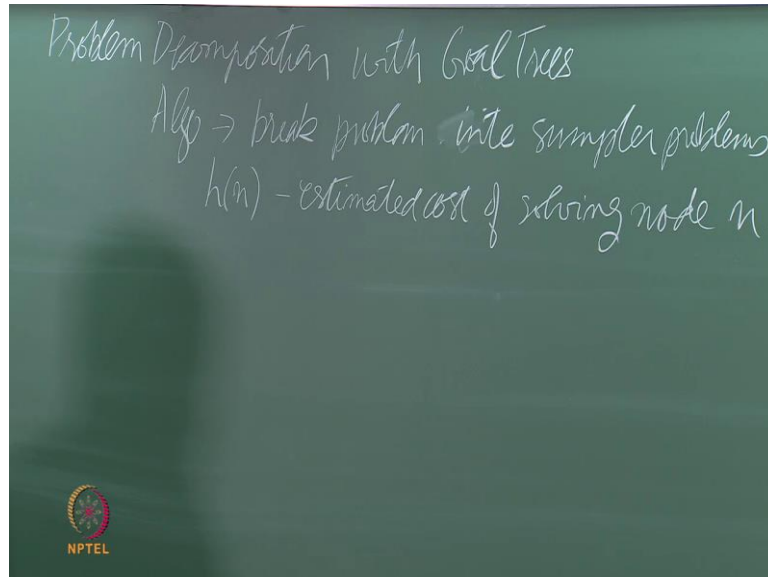 Problem Decomposition with Goal Trees
Algo → break problem into simpler problems
h(n) - estimated cost of solving node n
NPTEL